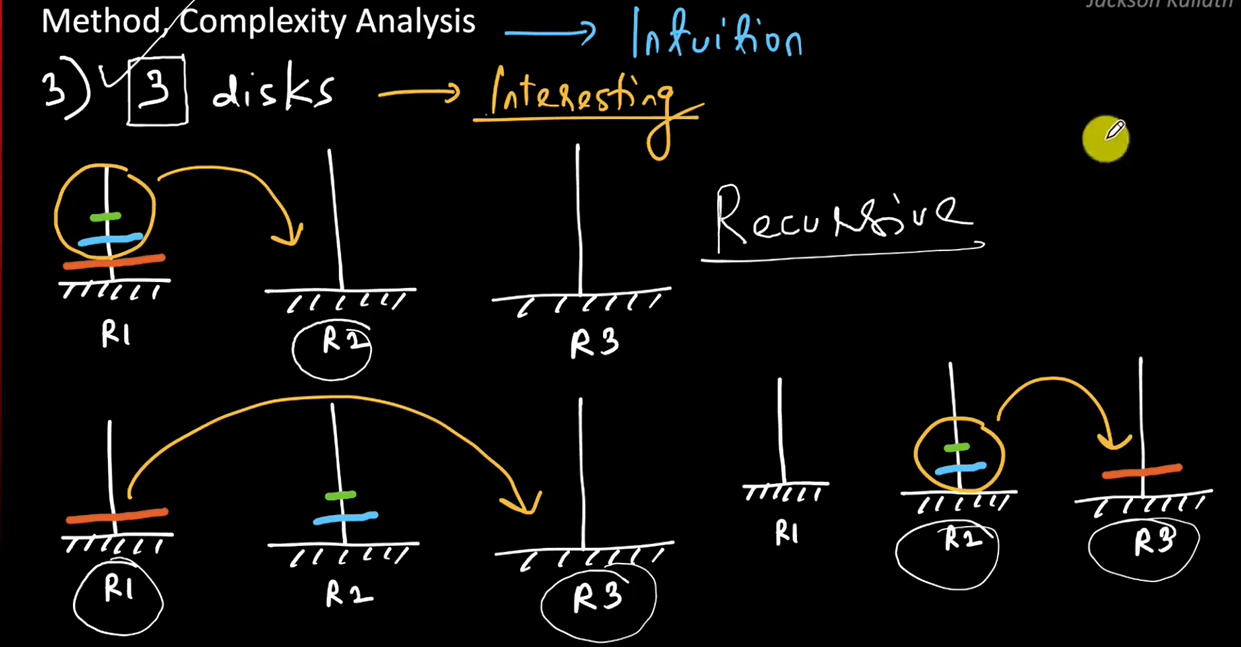 Jackson Kailath
Method, Complexity Analysis → Intuition
3) ✓ 3 disks → Interesting
Recursive
R1 R2 R3
R1 R2 R3
R1 R2 R3